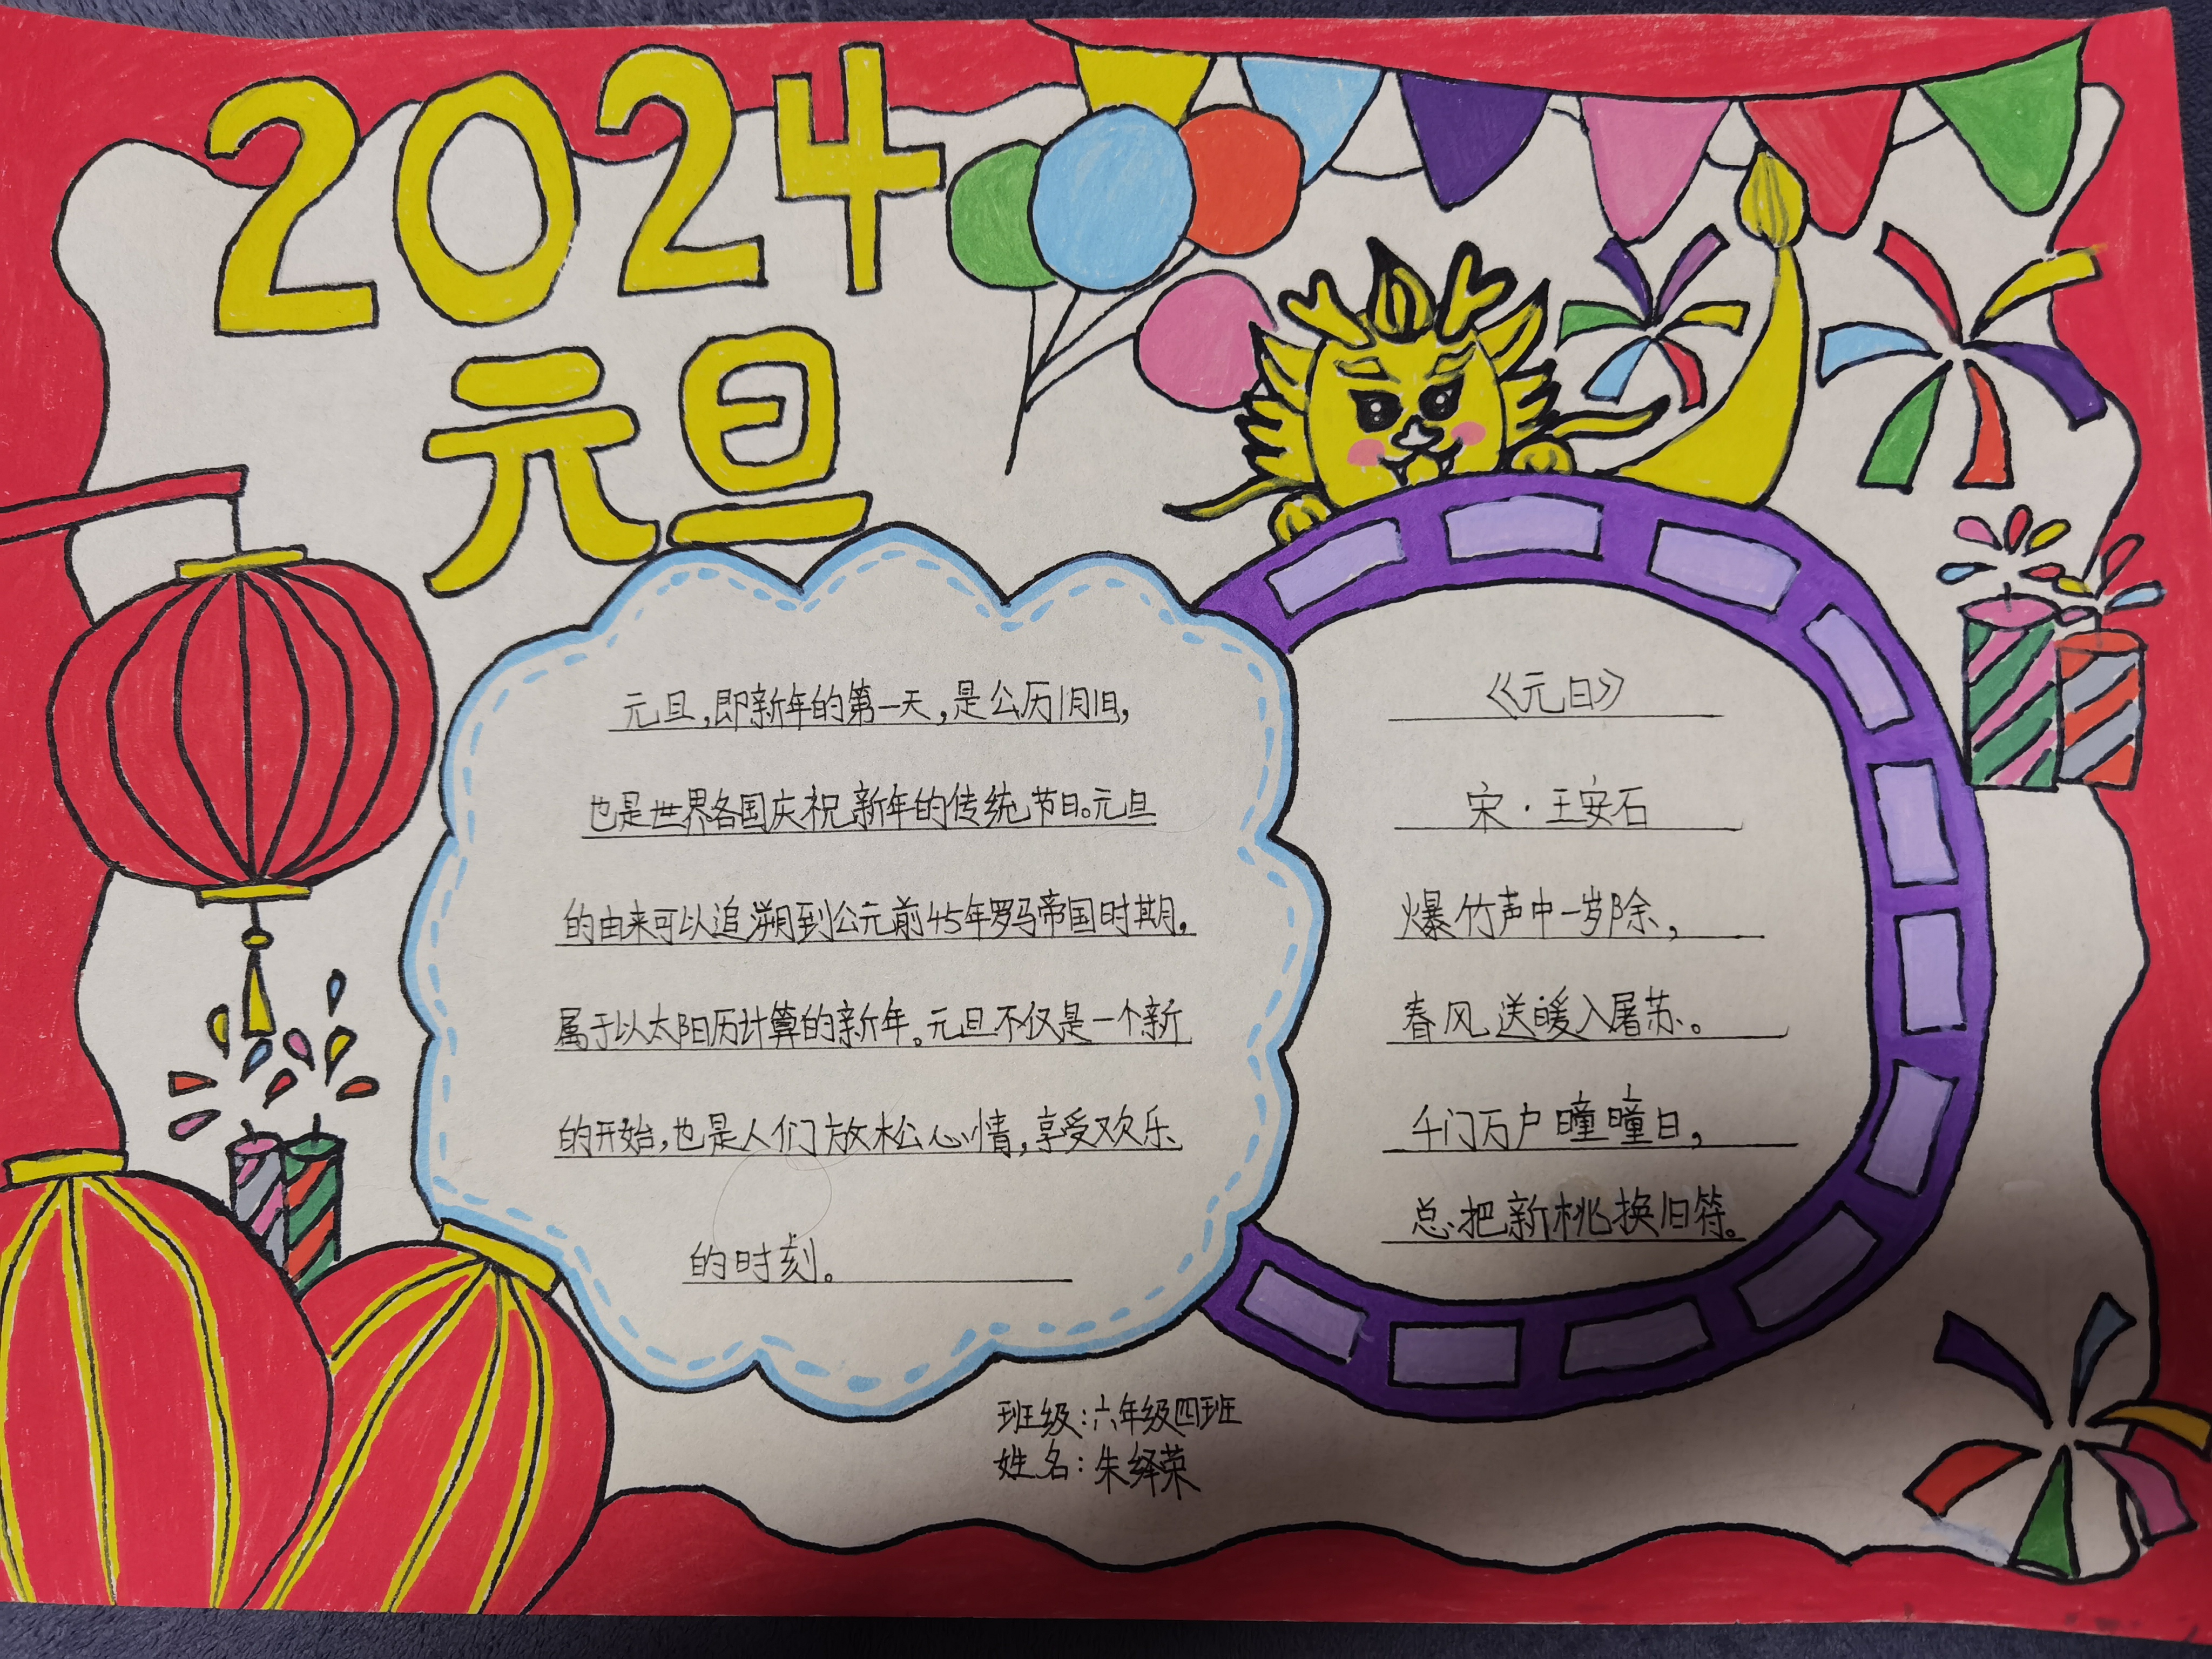 2024
元旦
元旦,即新年的第一天,是公历1月1日,
也是世界各国庆祝新年的传统节日。元旦
的由来可以追溯到公元前45年罗马帝国时期,
属于以太阳历计算的新年。元旦不仅是一个新
的开始,也是人们放松心情,享受欢乐
的时刻。
《元日》
宋·王安石
爆竹声中一岁除,
春风送暖入屠苏。
千门万户曈曈日,
总把新桃换旧符。
班级:六年级四班
姓名:朱绎荣